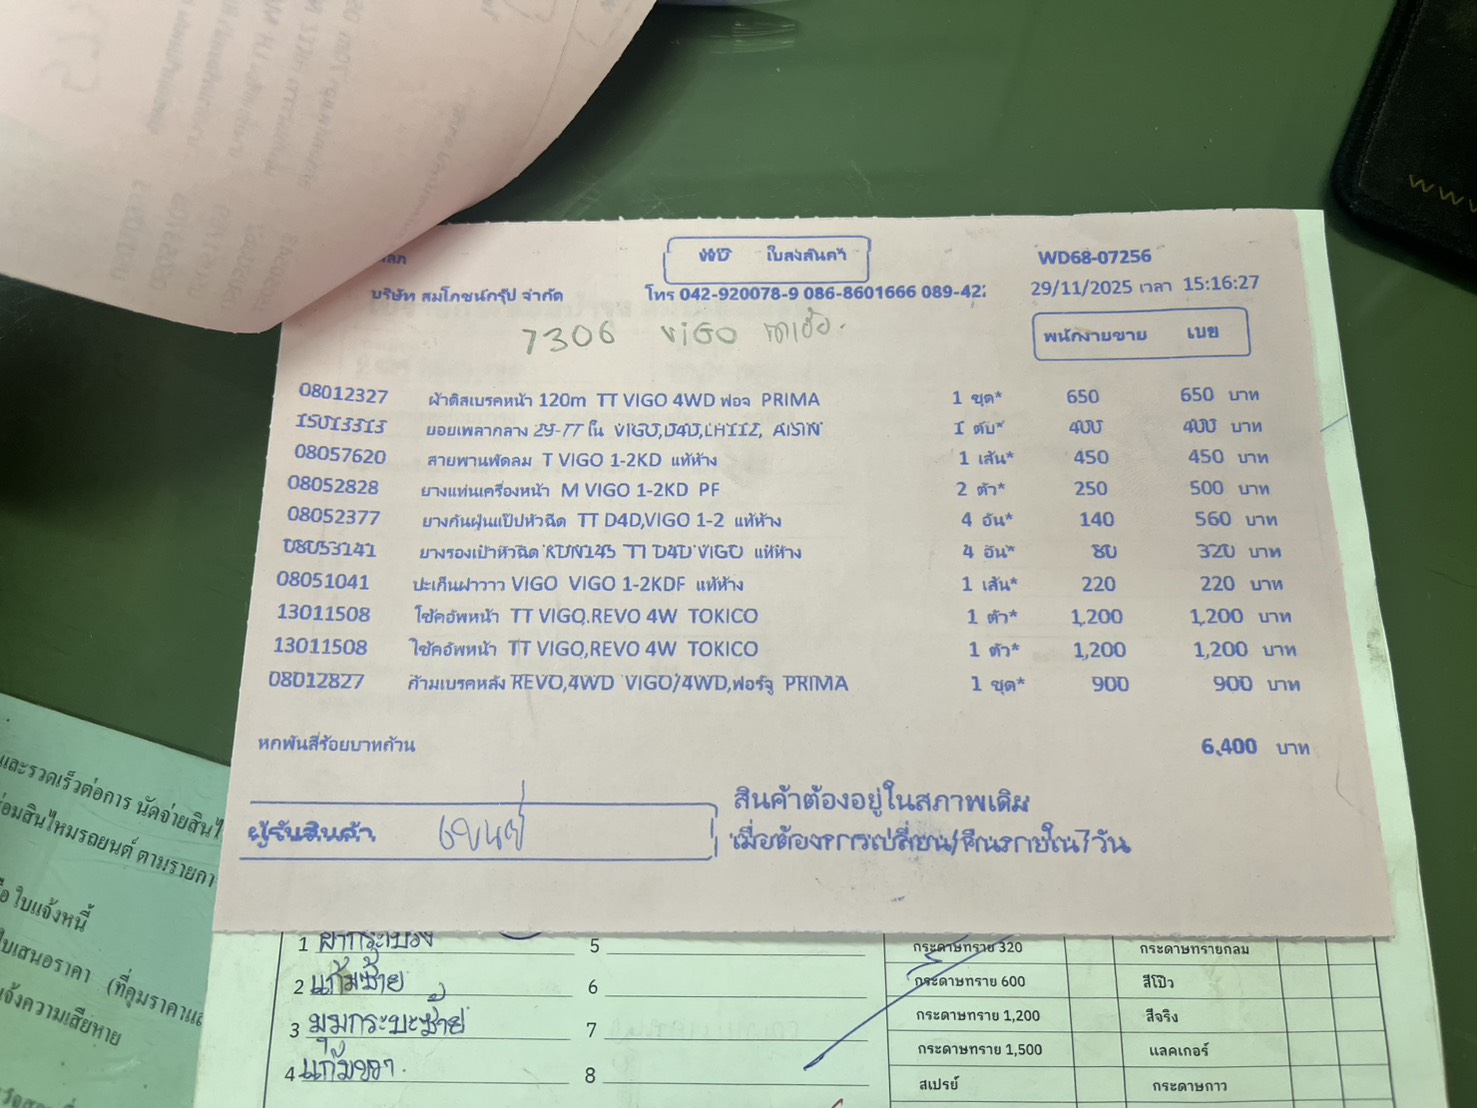 WD ใบส่งสินค้า
WD68-07256
บริษัท สมโภชน์กรุ๊ป จำกัด โทร 042-920078-9 086-8601666 089-42
29/11/2025 เวลา 15:16:27
7306 ViGO
พนักงายขาย เบย
08012327 ผ้าดิสเบรคหน้า 120m TT VIGO 4WD ฟอจ PRIMA 1 ชุด* 650 650 บาท
15013313 ยอยเพลากลาง 29-77 ใน VIGO,D4D,LH112, AISIN 1 ตับ* 400 400 บาท
08057620 สายพานพัดลม T VIGO 1-2KD แท้ห้าง 1 เส้น* 450 450 บาท
08052828 ยางแท่นเครื่องหน้า M VIGO 1-2KD PF 2 ตัว* 250 500 บาท
08052377 ยางกันฝุ่นแป๊ปหัวฉีด TT D4D,VIGO 1-2 แท้ห้าง 4 อัน* 140 560 บาท
08053141 ยางรองเบ้าหัวฉีด KDN145 TT D4D VIGO แท้ห้าง 4 อัน* 80 320 บาท
08051041 ปะเก็นฝาวาว VIGO VIGO 1-2KDF แท้ห้าง 1 เส้น* 220 220 บาท
13011508 โช้คอัพหน้า TT VIGO,REVO 4W TOKICO 1 ตัว* 1,200 1,200 บาท
13011508 โช้คอัพหน้า TT VIGO,REVO 4W TOKICO 1 ตัว* 1,200 1,200 บาท
08012827 ก้ามเบรคหลัง REVO,4WD VIGO/4WD,ฟอร์จู PRIMA 1 ชุด* 900 900 บาท
หกพันสี่ร้อยบาทถ้วน 6,400 บาท
สินค้าต้องอยู่ในสภาพเดิม
ผู้รับสินค้า
เมื่อต้องการเปลี่ยน/คืนภายใน7วัน
และรวดเร็วต่อการ นัดจ่ายสินไ
ซ่อมสินไหมรถยนต์ ตามรายกา
ใบแจ้งหนี้
ใบเสนอราคา (ที่คุมราคาแล
แจ้งความเสียหาย
1 ฝากระโปรง 5 กระดาษทราย 320 กระดาษทรายกลม
2 แก้มซ้าย 6 กระดาษทราย 600 สีโป๊ว
3 มุมกระบะซ้าย 7 กระดาษทราย 1,200 สีจริง
4 แก้มขวา 8 กระดาษทราย 1,500 แลคเกอร์
สเปรย์ กระดาษกาว